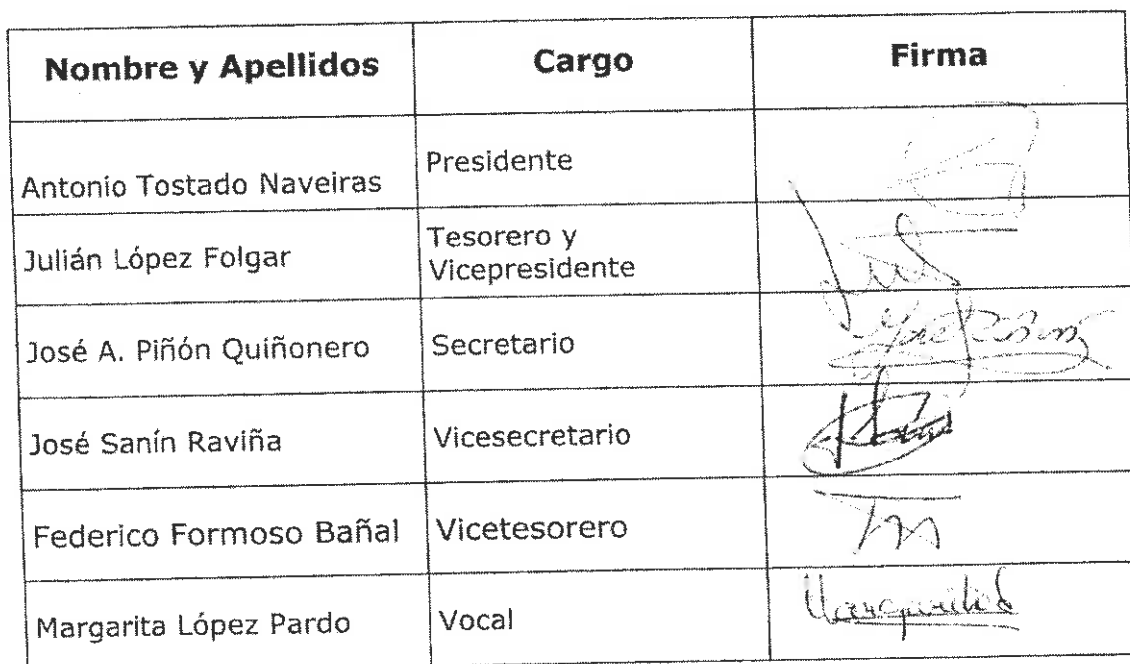 Nombre y Apellidos Cargo Firma
Antonio Tostado Naveiras Presidente
Julián López Folgar Tesorero y
Vicepresidente
José A. Piñón Quiñonero Secretario
José Sanín Raviña Vicesecretario
Federico Formoso Bañal Vicetesorero
Margarita López Pardo Vocal Margarita